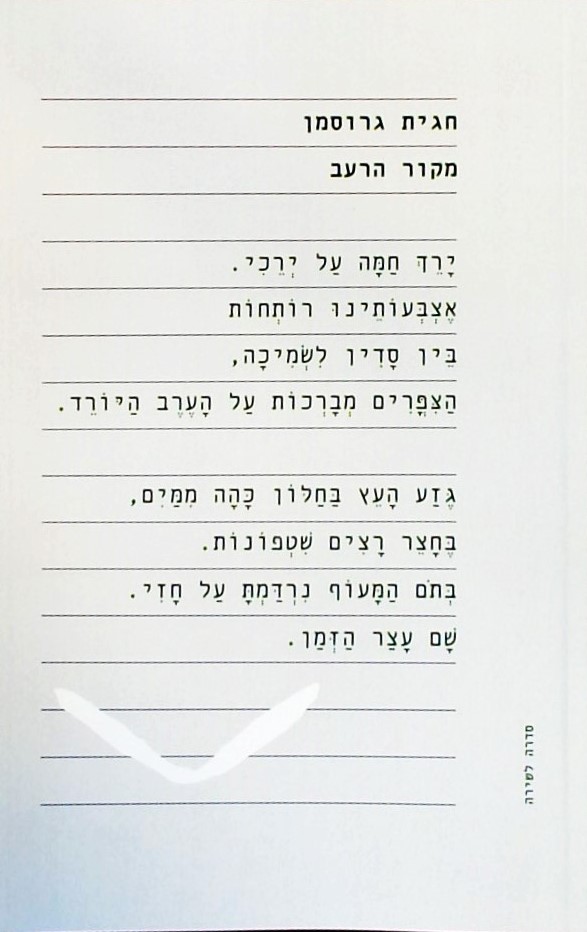 חגית גרוסמן
מקור הרעב
יָרֵךְ חַמָּה עַל יְרֵכִי.
אֶצְבְּעוֹתֵינוּ רוֹתְחוֹת
בֵּין סָדִין לִשְׂמִיכָה,
הַצִּפֳּרִים מְבָרְכוֹת עַל הָעֶרֶב הַיּוֹרֵד.
גֶּזַע הָעֵץ בַּחַלּוֹן כָּהָה מִמַּיִם,
בֶּחָצֵר רָצִים שִׁטְפוֹנוֹת.
בְּתֹם הַמָּעוֹף נִרְדַּמְתָּ עַל חָזִי.
שָׁם עָצַר הַזְּמַן.
סדרה לשירה